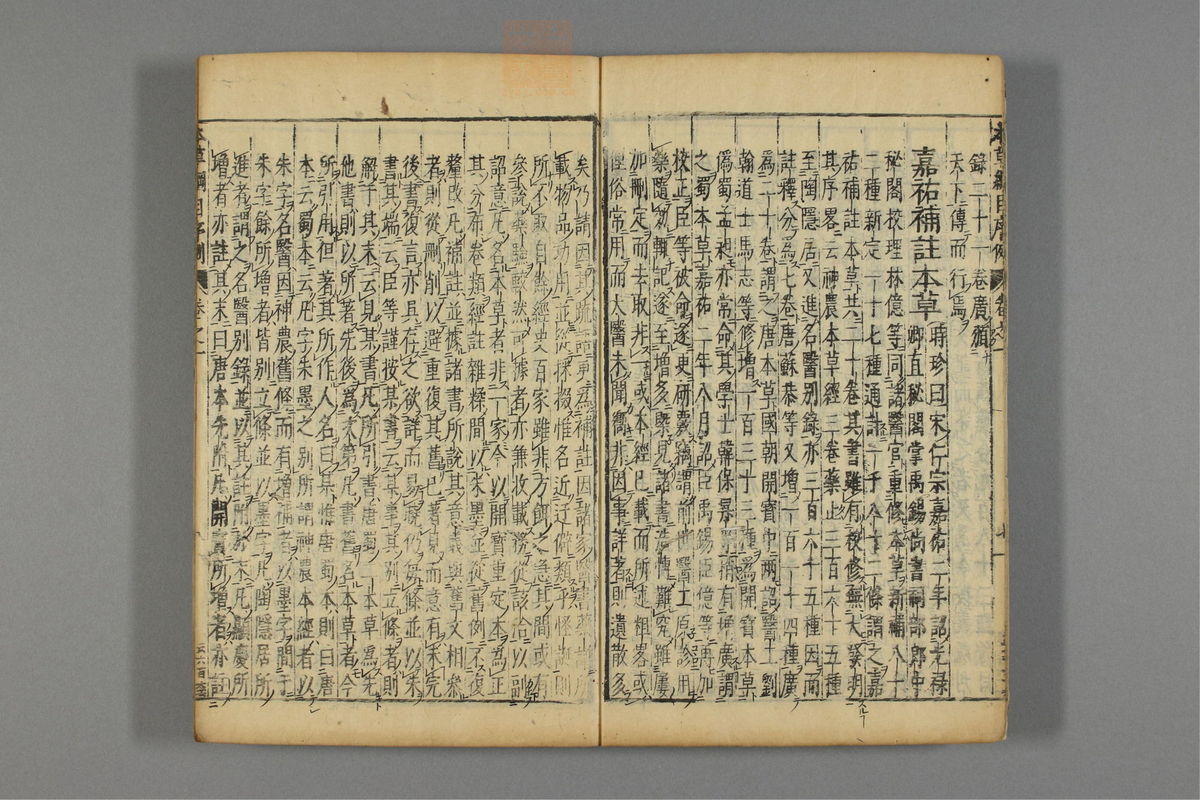 錄二十一卷廣頒
天下傳而行焉
嘉祐補註本草 時珍曰宋仁宗嘉祐二年詔光祿
卿直秘閣掌禹錫尚書祠部郎中
秘閣校理林億等同諸醫官重修本草新補八十
二種新定一十七種通計一千八十二條謂之嘉
祐補註本草共二十卷其書雖有校修無大發明
其序畧云神農本草經三卷藥止三百六十五種
至陶隱居又進名醫別錄亦三百六十五種因而
註釋分為七卷唐蘇恭等又增一百一十四種廣
為二十卷謂之唐本草國朝開寶中兩詔醫工劉
翰道士馬志等修增一百三十三種為開寶本草
偽蜀孟昶亦常命其學士韓保昇等稍有增廣謂
之蜀本草嘉祐二年八月詔臣禹錫臣億等再加
校正臣等被命遂更研覈竊謂前世醫工原診用
藥隨効輙記遂至增多槩見諸書浩博難究雖屢
加刪定而去取非一或本經已載而所述粗畧或
俚俗常用而太醫未聞嚮非因事詳著則遺散多
矣乃請因其疏補註因諸家醫書
載物品功用並從採掇惟名近迂僻類乎怪誕則
所不取自餘經史百家雖非方餌之急其間或有
參說藥驗較然可據者亦兼收載務從該洽以副
詔意凡名本草者非一家今以開寶重定本為正
其分布卷類經註雜糅間以朱墨並從舊例不復
釐改凡補註並據諸書所說其意義與舊文相參
者則從刪削以避重復其舊已著見而意有未完
後書復言亦具存之欲詳而易曉仍每條並以朱
書其端云臣等謹按某書云某事其別立條者則
解于其末云見某書凡所引書唐蜀二本草為先
他書則以所著先後為次第凡書舊名本草者今
所引用但著其所作人名曰某惟唐蜀本則曰唐
本云蜀本云凡字朱墨之別所謂神農本經者以
朱字名醫因神農舊條而有增補者以墨字間于
朱字餘所增者皆別立條並以墨字凡陶隱居所
進者謂之名醫別錄並以其註附于末凡顯慶所
增者亦註其末曰唐本先附凡開寶所增者亦註